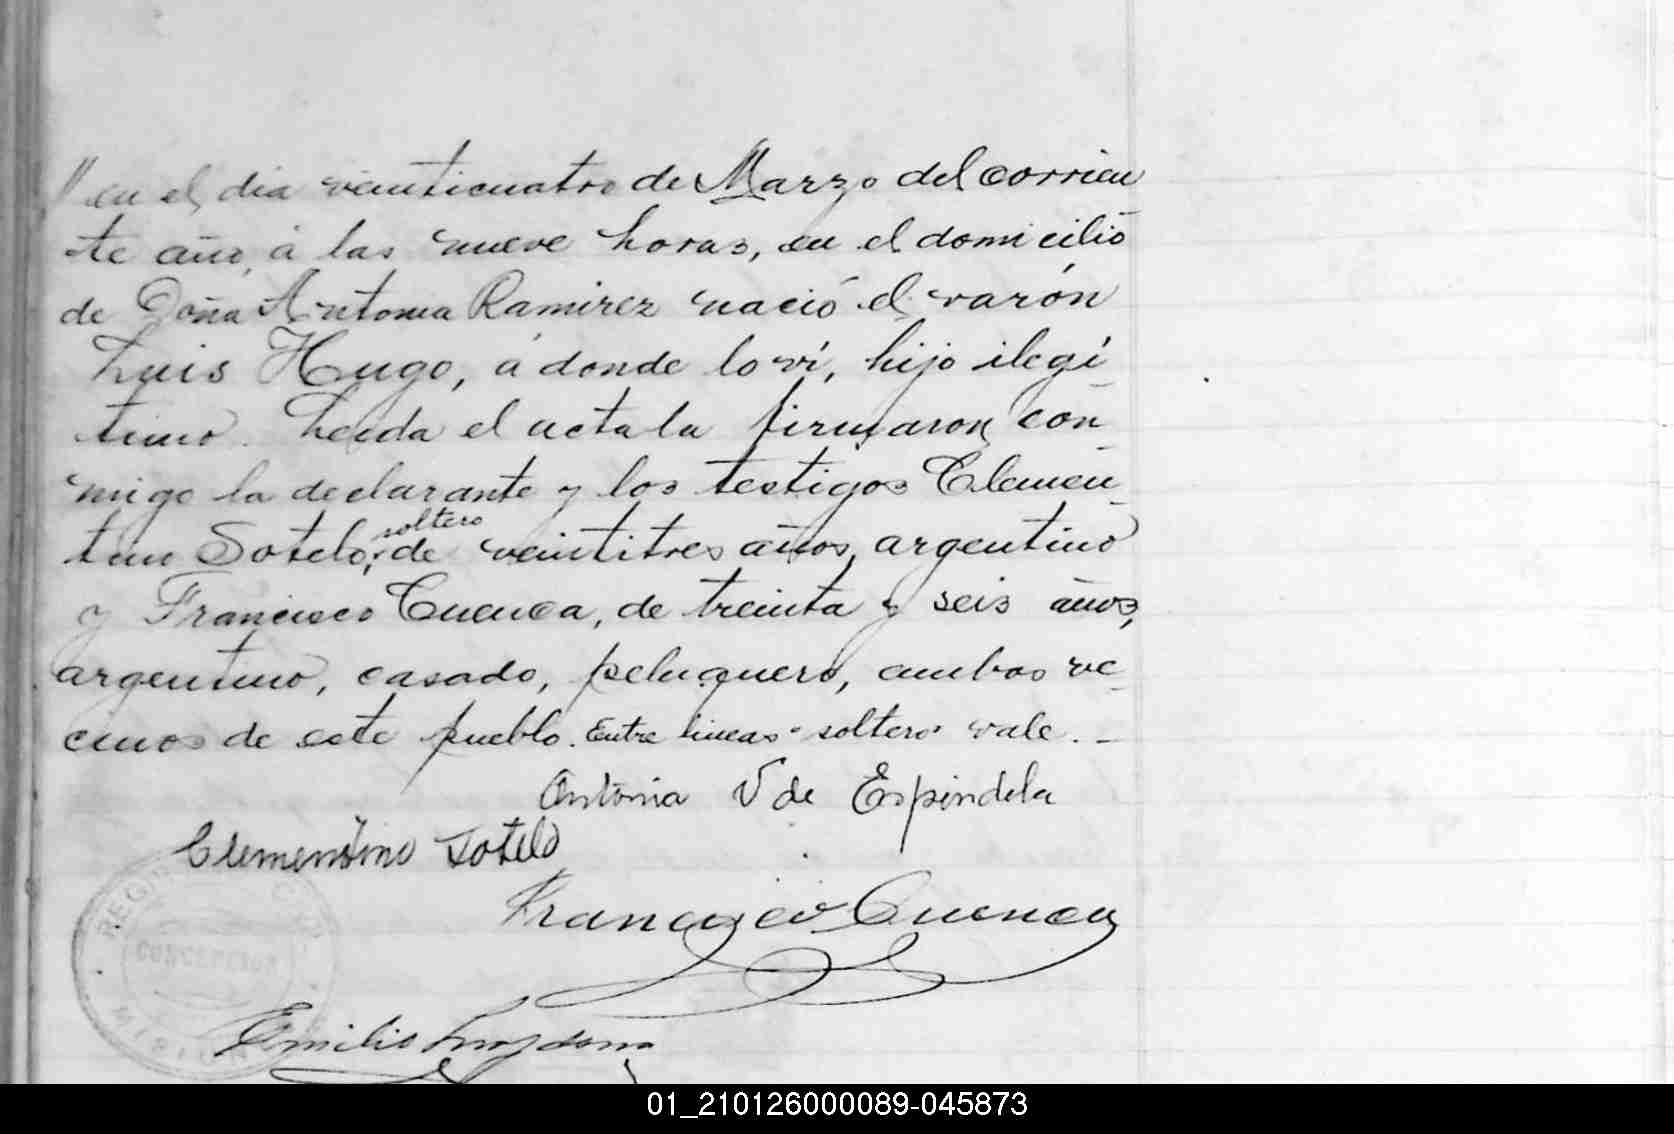 // en el dia veinticuatro de Marzo del corrien
te año, á las nueve horas, en el domicilio
de Doña Antonia Ramirez nació el varón
Luis Hugo, á donde lo ví, hijo ilegí
timo. Leida el acta la firmaron con
migo la declarante y los testigos Clemen
tino Sotelo, soltero de veintitres años, argentino
y Francisco Cuenca, de treinta y seis años,
argentino, casado, peluquero, ambos ve
cinos de este pueblo. Entre lineas "soltero" vale. -
Antonia V de Espindela
Clementino Sotelo
Francisco Cuenca
REGI
CONCEPCION
MISI
Emilio
01_210126000089-045873